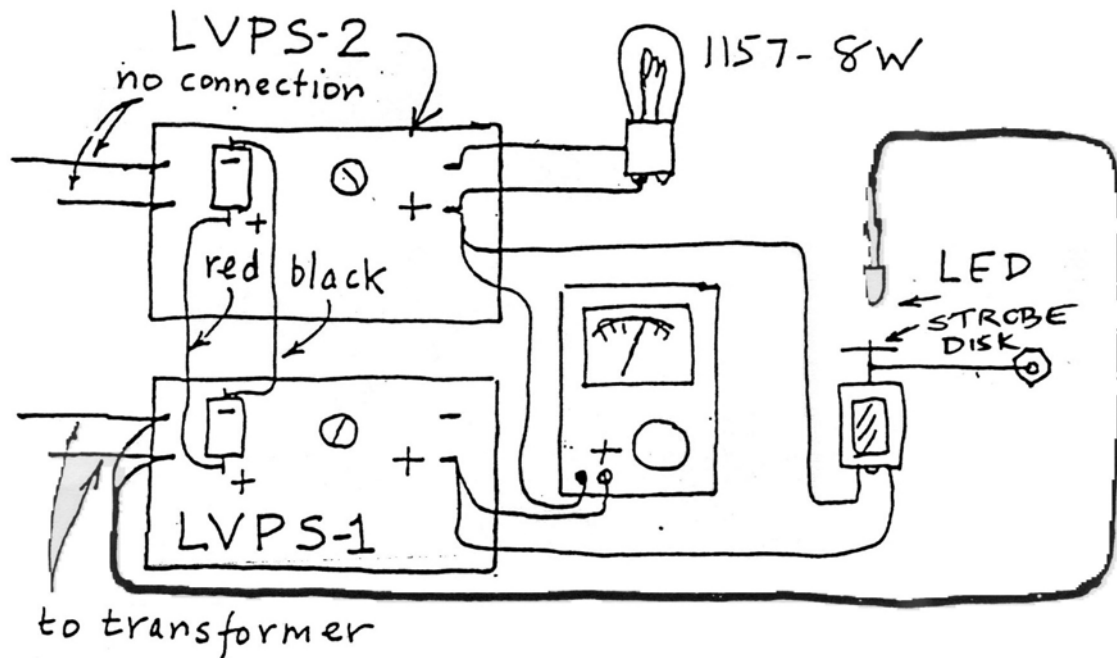 LVPS-2
no connection
1157-8W
-
-
+
+
red
black
LED
STROBE
DISK
-
-
+
+
+
LVPS-1
to transformer